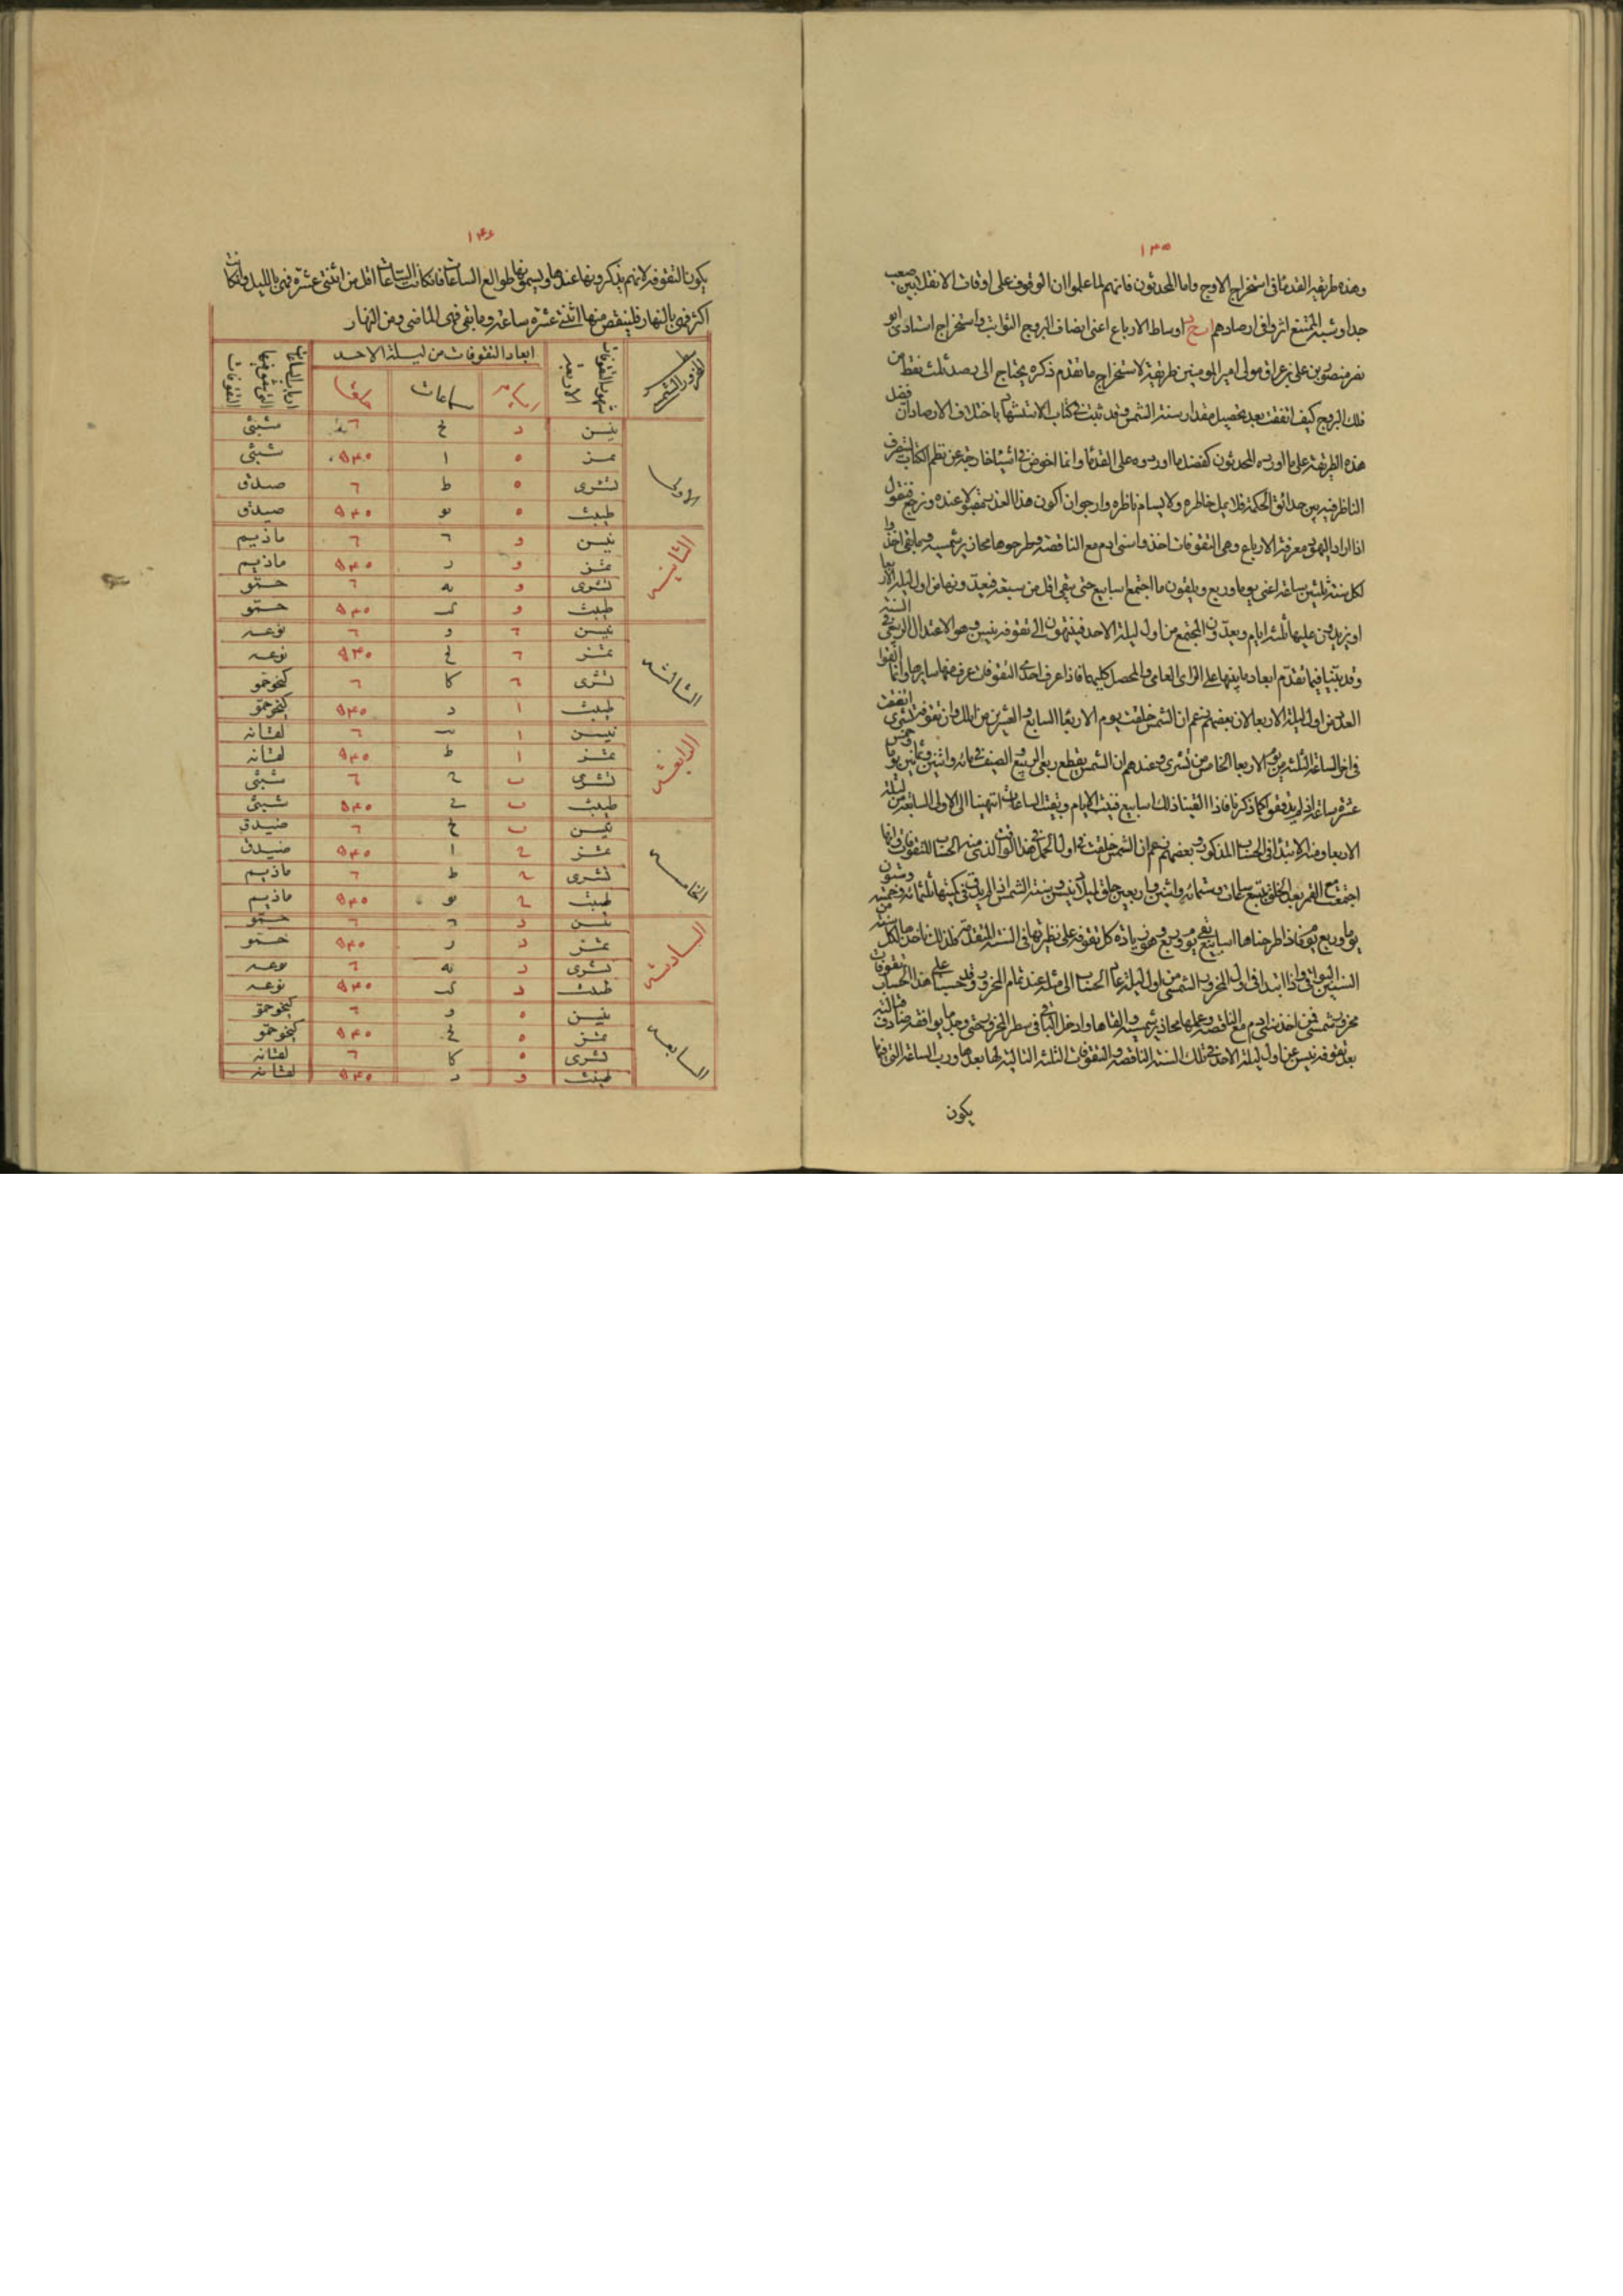 ١٣٥
وهذه طريقة القدماء فى استخراج الاوج واما المحدثون فانهم لما علموا ان الوقوف على اوقات الانقلابين صعب
جدا وشبه الممتنع اثروا فى ارصادهم اوساط الارباع اعنى انصاف البروج الثوابت واستخراج استاذى ابو
نصر منصور بن على بن عراق مولى امير المومنين طريقة لاستخراج ما تقدم ذكره يحتاج الى رصد ثلث نقط من
فلك البروج كيف اتفقت بعد تحصيل مقدار سنة الشمس وقد ثبت فى كتاب الاستشهاد باختلاف الارصاد ان فضل
هذه الطريقة على ما اورده المحدثون كفضل ما اوردوه على القدماء وانما اخوض فى اشياء خارجة عن نظم الكتاب ليتصرف
الناظر فيه بين حدائق الحكمة فلا يمل خاطره ولا يسام ناظره وارجو ان اكون هذا العذر مقبولا عنده ونرجع فنقول
اذا اراد اليهود معرفة الارباع وهى التقوفات اخذوا سنى ادم مع الناقصة وطرحوها محازير شمسية وما بقى اخذوا
لكل سنة ثلثين ساعة اعنى يوما وربع ويلقون ما اجتمع اسابيع حتى يبقى اقل من سبعة فيعدونها من اول ليلة الاربعا
او يزيدون عليها ثلثة ايام ويعدون المجتمع من اول ليلة الاحد فينتهون الى تقوفة نيسن وهو الاعتدال الربيعى فى السنة
وقد بينا فيما تقدم ابعاد ما بينها على الراى العامى والمحصل كليهما فاذا عرف احدى التقوفات عرف منها سايرها وانما القوا
العدد من اول ليلة الاربعا لان بعضهم زعم ان الشمس خلقت يوم الاربعا السابع والعشرين من ايلول وان تقوفة تشرى اتفقت
فى اخر الساعة الثلثة من يوم الاربعا الخامس من تشرى وعندهم ان الشمس يقطع ربعى الربيع والصيف فى مائة واثنين وثمانين يوما وخمس
عشرة ساعة اذ لم يدققوا كما ذكرنا فاذا القينا ذلك اسابيع فنيت الايام وبقيت الساعات انتهينا الى الاولى السابعة من ليلة
الاربعا ومنه الابتدا فى الحساب المذكور وبعضهم زعم ان الشمس خلقت فى اول الحمل فى هذا الوقت الذى منه الحساب للتقوفات وانها
اجتمعت مع القمر بعد الخلق بتسع ساعات وستمائة واثنين واربعين حلق ليلاد نيسن وسنة الشمس اذ لم يدقق فى كميتها ثلثمائة وخمسة وستون
يوما وربع يوم فاذا طرحناها اسابيع بقى يوم وربع وهو زيادة كل تقوفة على نظيرتها فى السنة المتقدمة فلذلك ناخذ هما لكل سنة من
السنين البواقى واذا ابتدا فى اول المحزور الشمسى من اول ليلة عاد الحساب الى مثله عند تمام المحزور وقد حسبنا على هذا الحساب تقوفات
محزور شمسى فمن اخذ سنى ادم مع الناقصة وعملها محازير شمسية والقاها وادخل الباقى فى سطر المحزور حتى وجد ما يوافقه صادف قبالته
بعد تقوفة نيسن عن اول ليلة الاحد فى تلك السنة الناقصة والتقوفات الثلثة التالية لها بعدها ورب الساعة التى فيها
يكون
١٣٦
يكون التقوفة لانهم يذكرونها عندها ويسمونها طوالع الساعات فان كانت الساعات اقل من اثنتى عشرة فهى بالليل وان كانت
اكثر فهى بالنهار فلينقص منها اثنتى عشرة ساعة وما بقى فهى الماضى من النهار
المحزور الشمسى | شهور التقوفات الاربعة | ابعاد التقوفات من ليلة الاحد | ارباب الساعات التى فيها التقوفات
ايام | ساعات | حلق
الاولى | نيسن | د | ح | ٦ | شبثى
تمز | ٥ | ا | ٥٤٠ | شبثى
تشرى | ٥ | ط | ٦ | صيدق
طيبث | ٥ | يو | ٥٤٠ | صيدق
الثانية | نيسن | و | ٦ | ماذيم
تمز | و | ر | ٥٤٠ | ماذيم
تشرى | و | يه | ٦ | حمتو
طيبث | و | ك | ٥٤٠ | حمتو
الثالثة | نيسن | ٦ | و | ٦ | نوعه
تمز | ٦ | ٥٤٠ | نوعه
تشرى | ٦ | كا | ٦ | كيخوحمو
طيبث | ا | د | ٥٤٠ | كيخوحمو
الرابعة | نيسن | ا | ٦ | لفثانه
تمز | ا | ط | ٥٤٠ | لفثانه
تشرى | ب | ٦ | شبثى
طيبث | ب | ٥٤٠ | شبثى
الخامسة | نيسن | ب | ٦ | صيدق
تمز | ا | ٥٤٠ | صيدق
تشرى | ط | ٦ | ماذيم
طيبث | يو | ٥٤٠ | ماذيم
السادسة | نيسن | د | ٦ | حمتو
تمز | د | ر | ٥٤٠ | حمتو
تشرى | د | يه | ٦ | نوعه
طيبث | د | ك | ٥٤٠ | نوعه
السابعة | نيسن | ٥ | و | ٦ | كيخوحمو
تمز | ٥ | ٥٤٠ | كيخوحمو
تشرى | ٥ | كا | ٦ | لفثانه
طيبث | و | د | ٥٤٠ | لفثانه